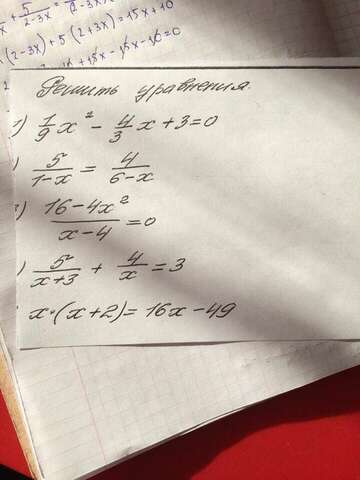 x + 5/(2-3x) =
(2-3x) + 5(2+3x) = 15x + 10
Решить уравнения.
1) 1/9 x² - 4/3 x + 3 = 0
) 5/(1-x) = 4/(6-x)
3) (16-4x²)/(x-4) = 0
) 5/(x+3) + 4/x = 3
x·(x+2) = 16x - 49